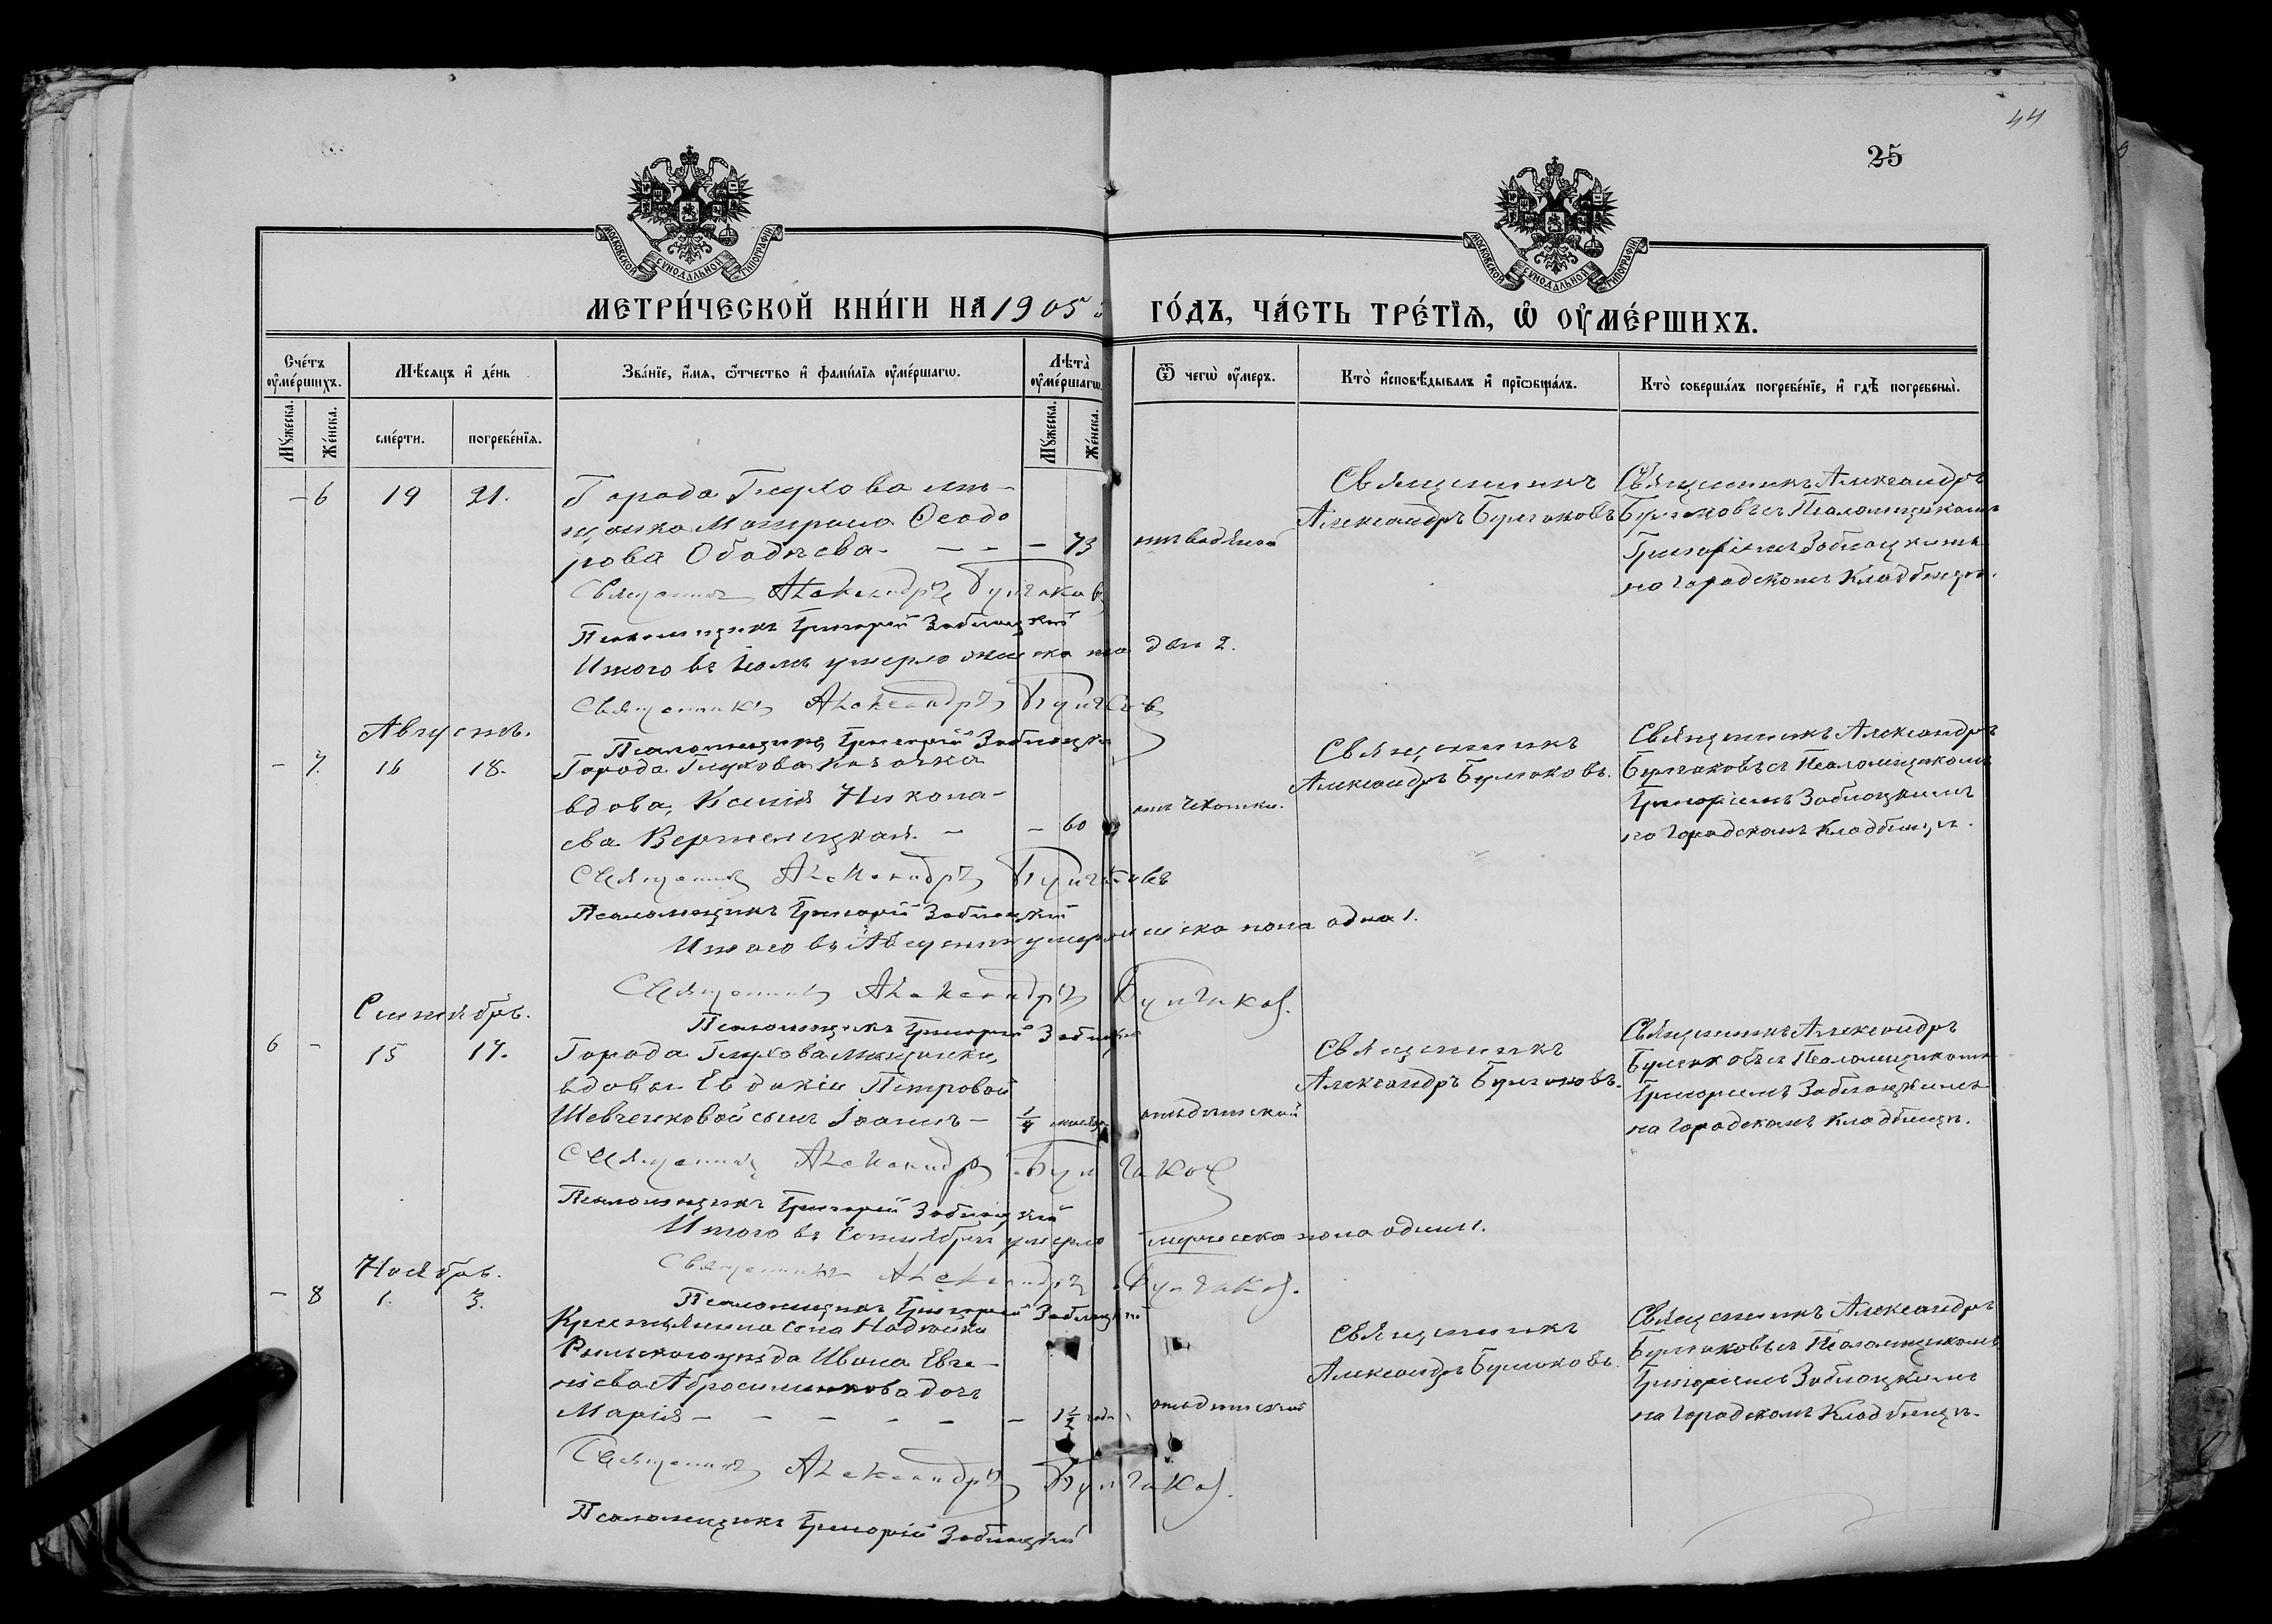 44
25
МОСКОВСКОЙ СΥНОДАЛЬНОЙ ТИПОГРАФІИ
МОСКОВСКОЙ СΥНОДАЛЬНОЙ ТИПОГРАФІИ
МЕТРИ́ЧЕСКОЙ КНИ́ГИ НА 1905 ГО́ДЪ, ЧА́СТЬ ТРЕ́ТЇѦ, Ѡ҆ ОУ҆МЕ́РШИХЪ.
Сче́тъ оу҆ме́ршихъ.
Мѣ́сѧцъ и҆ де́нь
Зва́нїе, и҆́мѧ, ѻ҆́тчество и҆ фами́лїѧ оу҆ме́ршагѡ.
Лѣ́та оу҆ме́ршагѡ.
Ѿ чегѡ̀ оу҆́меръ.
Кто̀ и҆сповѣ́дывалъ и҆ прїѡбща́лъ.
Кто̀ соверша́лъ погребе́нїе, и҆ гдѣ̀ погребены̀.
Му́жеска.
Же́нска.
сме́рти.
погребе́нїѧ.
Му́жеска.
Же́нска.
- 6 19 21. Города Глухова мѣ-
щанка Матрона Ѳеодо
рова Ободяева - - - - 73
отъ водяной
Священникъ
Александръ Булгаковъ
Священникъ Александръ
Булгаковъ съ Псаломщикомъ
Григоріемъ Заблоцкимъ
на городскомъ кладбищѣ.
Священникъ Александръ Булгаковъ
Псаломщикъ Григорій Заблоцкій
Итого въ Іюлѣ умерло женска пола двѣ 2.
Священникъ Александръ Булгаковъ
Псаломщикъ Григорій Заблоцкій
Августъ.
- 7. 16 18. Города Глухова казачка
вдова, Ксенія Никола-
ева Вержелецкая. - - 60
отъ чехотки.
Священникъ
Александръ Булгаковъ.
Священникъ Александръ
Булгаковъ съ Псаломщикомъ
Григоріемъ Заблоцкимъ
на городскомъ кладбищѣ.
Священникъ Александръ Булгаковъ
Псаломщикъ Григорій Заблоцкій
Итого въ Августѣ умерло женска пола одна 1.
Священникъ Александръ Булгаковъ.
Псаломщикъ Григорій Заблоцкій
Сентябрь.
6 - 15 17. Города Глухова мѣщанки,
вдовы Евдокіи Петровой
Шевченковой сынъ Іоаннъ - 1/4 мѣсяца
отъ дѣтской
Священникъ
Александръ Булгаковъ.
Священникъ Александръ
Булгаковъ съ Псаломщикомъ
Григоріемъ Заблоцкимъ
на городскомъ кладбищѣ.
Священникъ Александръ Булгаковъ
Псаломщикъ Григорій Заблоцкій
Итого въ Сентябрѣ умерло мужеска пола одинъ 1.
Священникъ Александръ Булгаковъ.
Псаломщикъ Григорій Заблоцкій
Ноябрь.
- 8 1. 3. Крестьянина села
Рыльского уѣзда Ивана Евге-
ніева Абросименкова дочь
Марія - - - - - - 1 1/2 года
отъ дѣтской
Священникъ
Александръ Булгаковъ.
Священникъ Александръ
Булгаковъ съ Псаломщикомъ
Григоріемъ Заблоцкимъ
на городскомъ кладбищѣ.
Священникъ Александръ Булгаковъ.
Псаломщикъ Григорій Заблоцкій